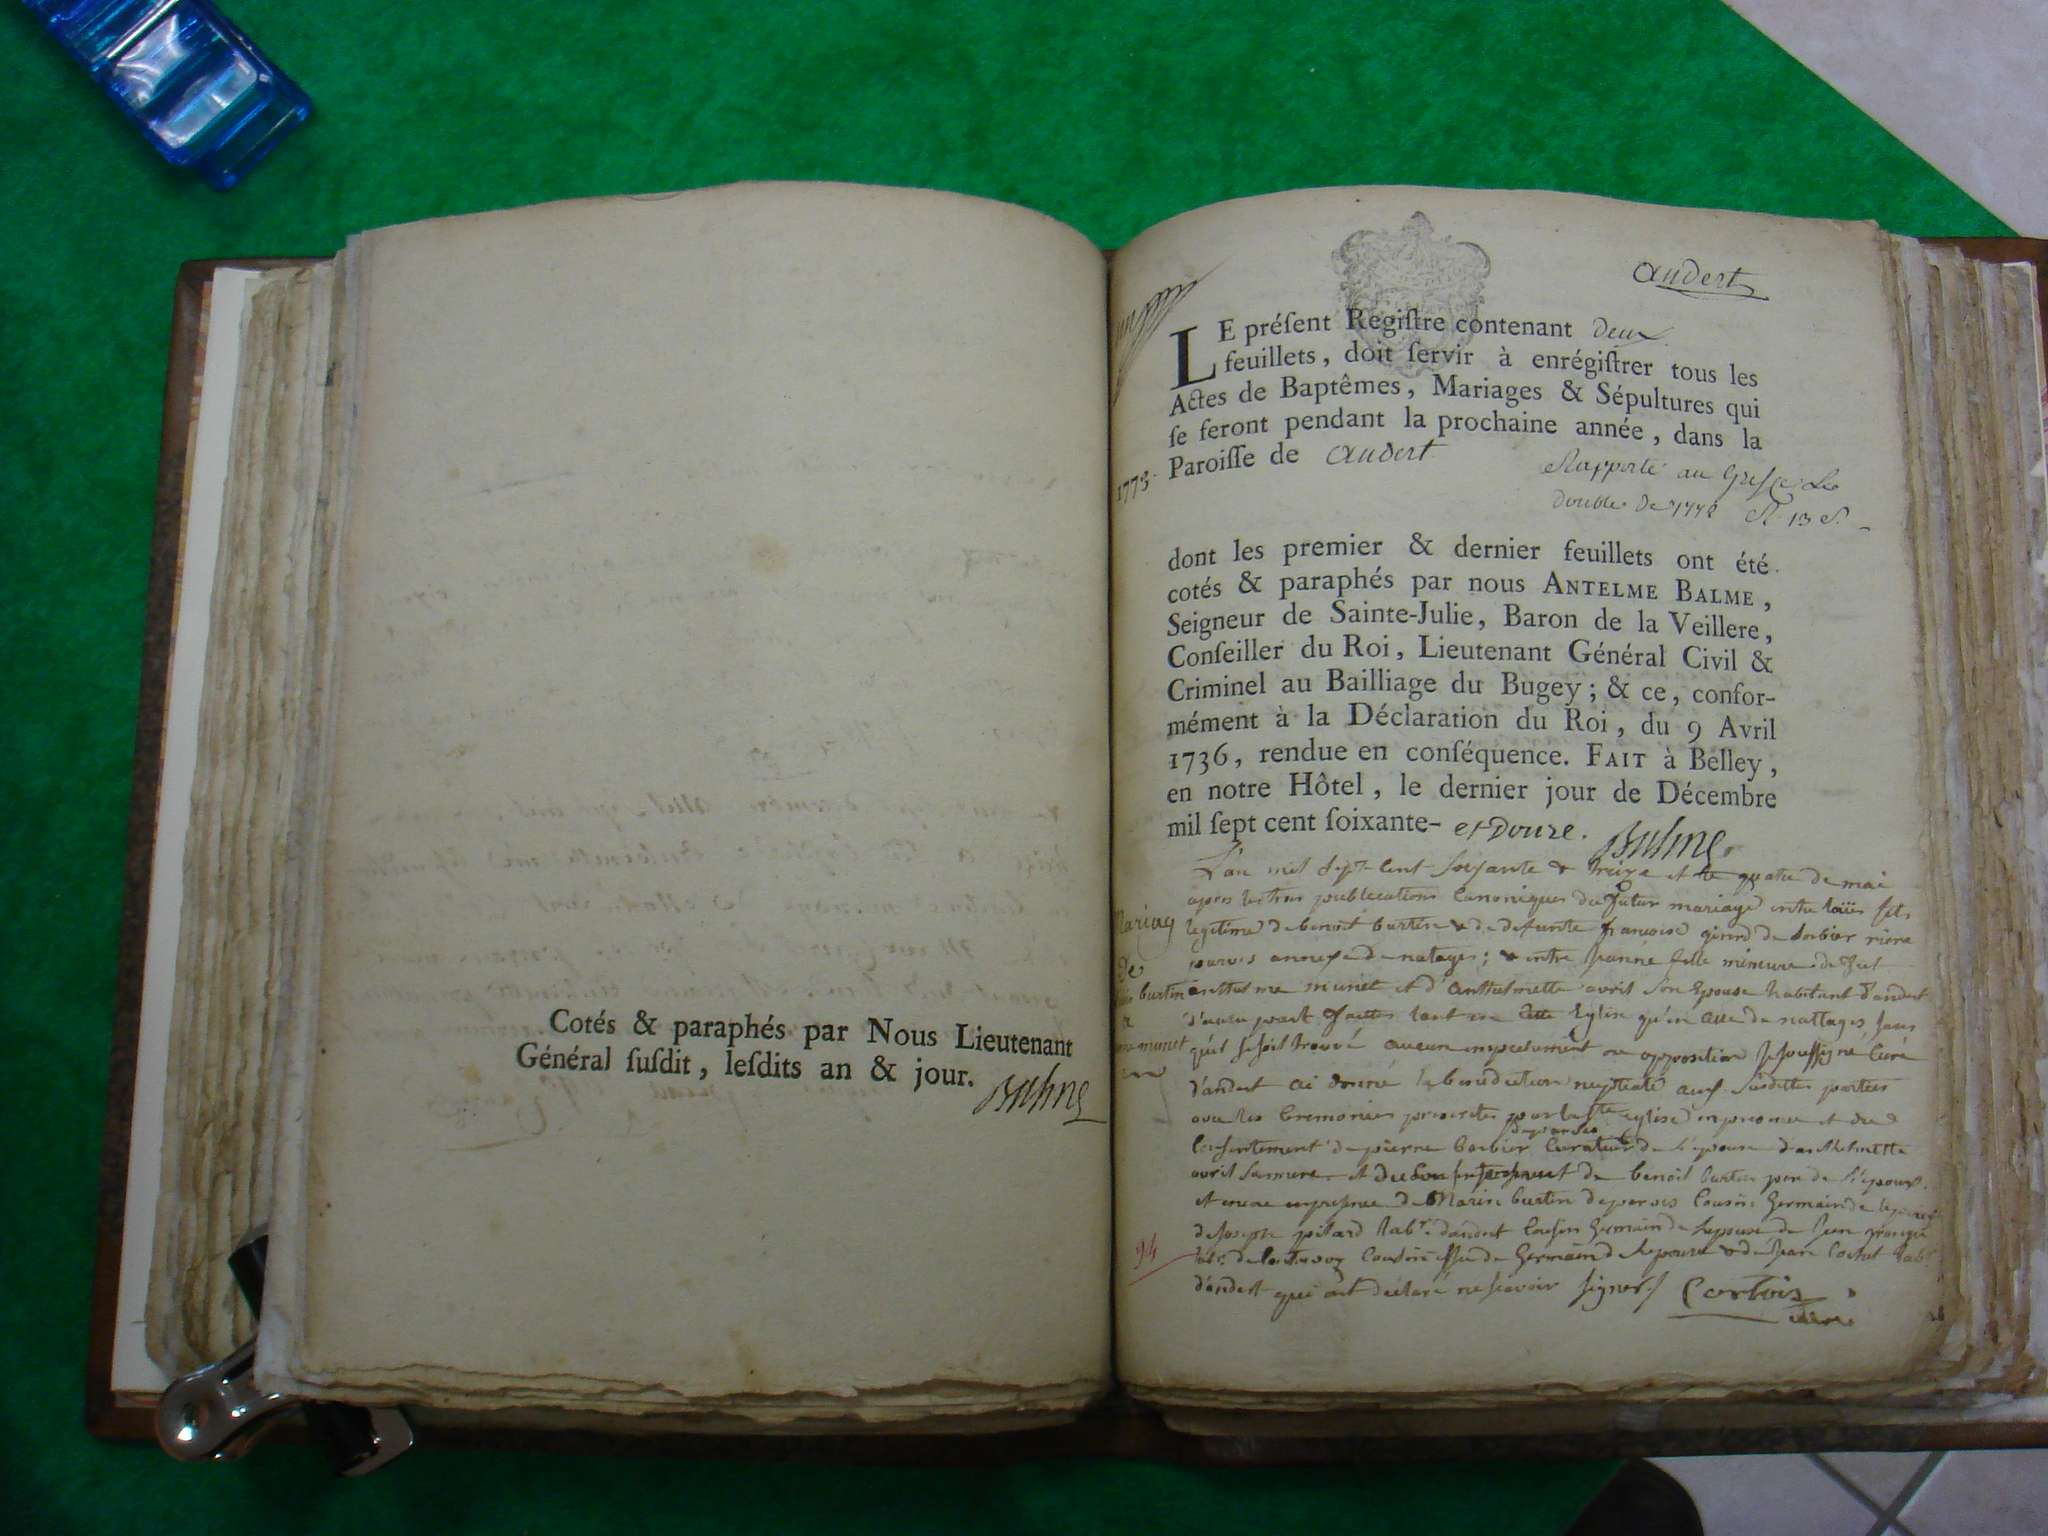 Cotés & paraphés par Nous Lieutenant
Général ſuſdit, leſdits an & jour.
Balme
andert
LE préſent Regiſtre contenant deux
feuillets, doit ſervir à enrégiſtrer tous les
Actes de Baptêmes, Mariages & Sépultures qui
ſe feront pendant la prochaine année, dans la
Paroiſſe de andert
1773.
Rapporté au Greffe Le
double de 1772
dont les premier & dernier feuillets ont été
cotés & paraphés par nous ANTELME BALME,
Seigneur de Sainte-Julie, Baron de la Veillere,
Conſeiller du Roi, Lieutenant Général Civil &
Criminel au Bailliage du Bugey; & ce, confor-
mément à la Déclaration du Roi, du 9 Avril
1736, rendue en conſéquence. FAIT à Belley,
en notre Hôtel, le dernier jour de Décembre
mil ſept cent ſoixante- et douze. Balme
L'an mil sept cent soixante & treize et le quatre de mai
apres les trois publications canoniques du futur mariage entre loüis fils
legitime de benoit burtin & de defunte francoise girerd de
parves annexe de natages; & entre fille mineure de feu
anthelme munet et d'anthelmette avril son epouse habitant d'andert
d'autre part faittes tant en cette Eglise qu'en celle de nattages sans
qu'il se soit trouvé aucun empechement ou opposition Je soussigné Curé
d'andert ai donné la benediction nuptiale aux susdittes parties
avec les Ceremonies prescrites par la ste eglise en presence et du
consentement de pierre barbier curateur de l'epouse d'anthelmette
avril sa mere et du de benoit burtin pere de l'epoux
et encore en presence de Marin burtin de parves Cousin Germain de l'epoux
de Joseph pitard lab.r d'andert Cousin Germain de l'epouse de Jean
lab.r de Cousin issu de Germain de l'epouse & de Jean lab.r
d'andert qui ont declaré ne scavoir signer Courtois
curé
Mariag
de
burtin
&
munet
94